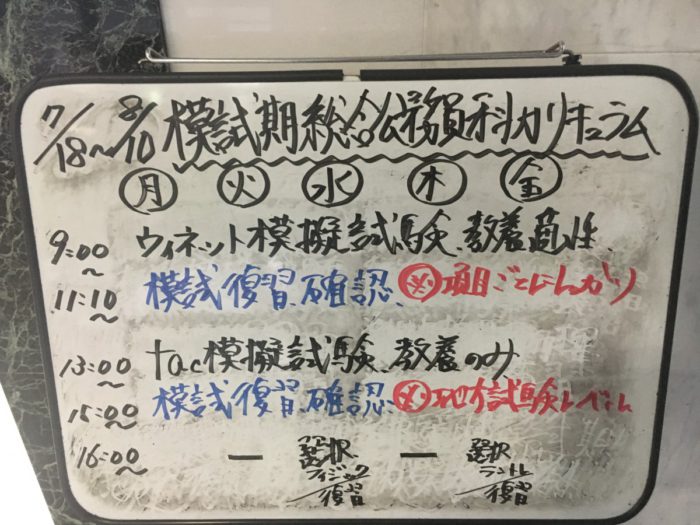 7/18〜8/10 模試期総合公務員科カリキュラム
月 火 水 木 金
9:00〜 ウィネット模擬試験、教養適性
11:10〜 模試復習、確認、㊙項目ごとにしっかり
13:00〜 tac模擬試験、教養のみ
15:00〜 模試復習、確認、地方試験レベル
16:00〜 ー 選択 フィジック/復習 ー 選択 /復習